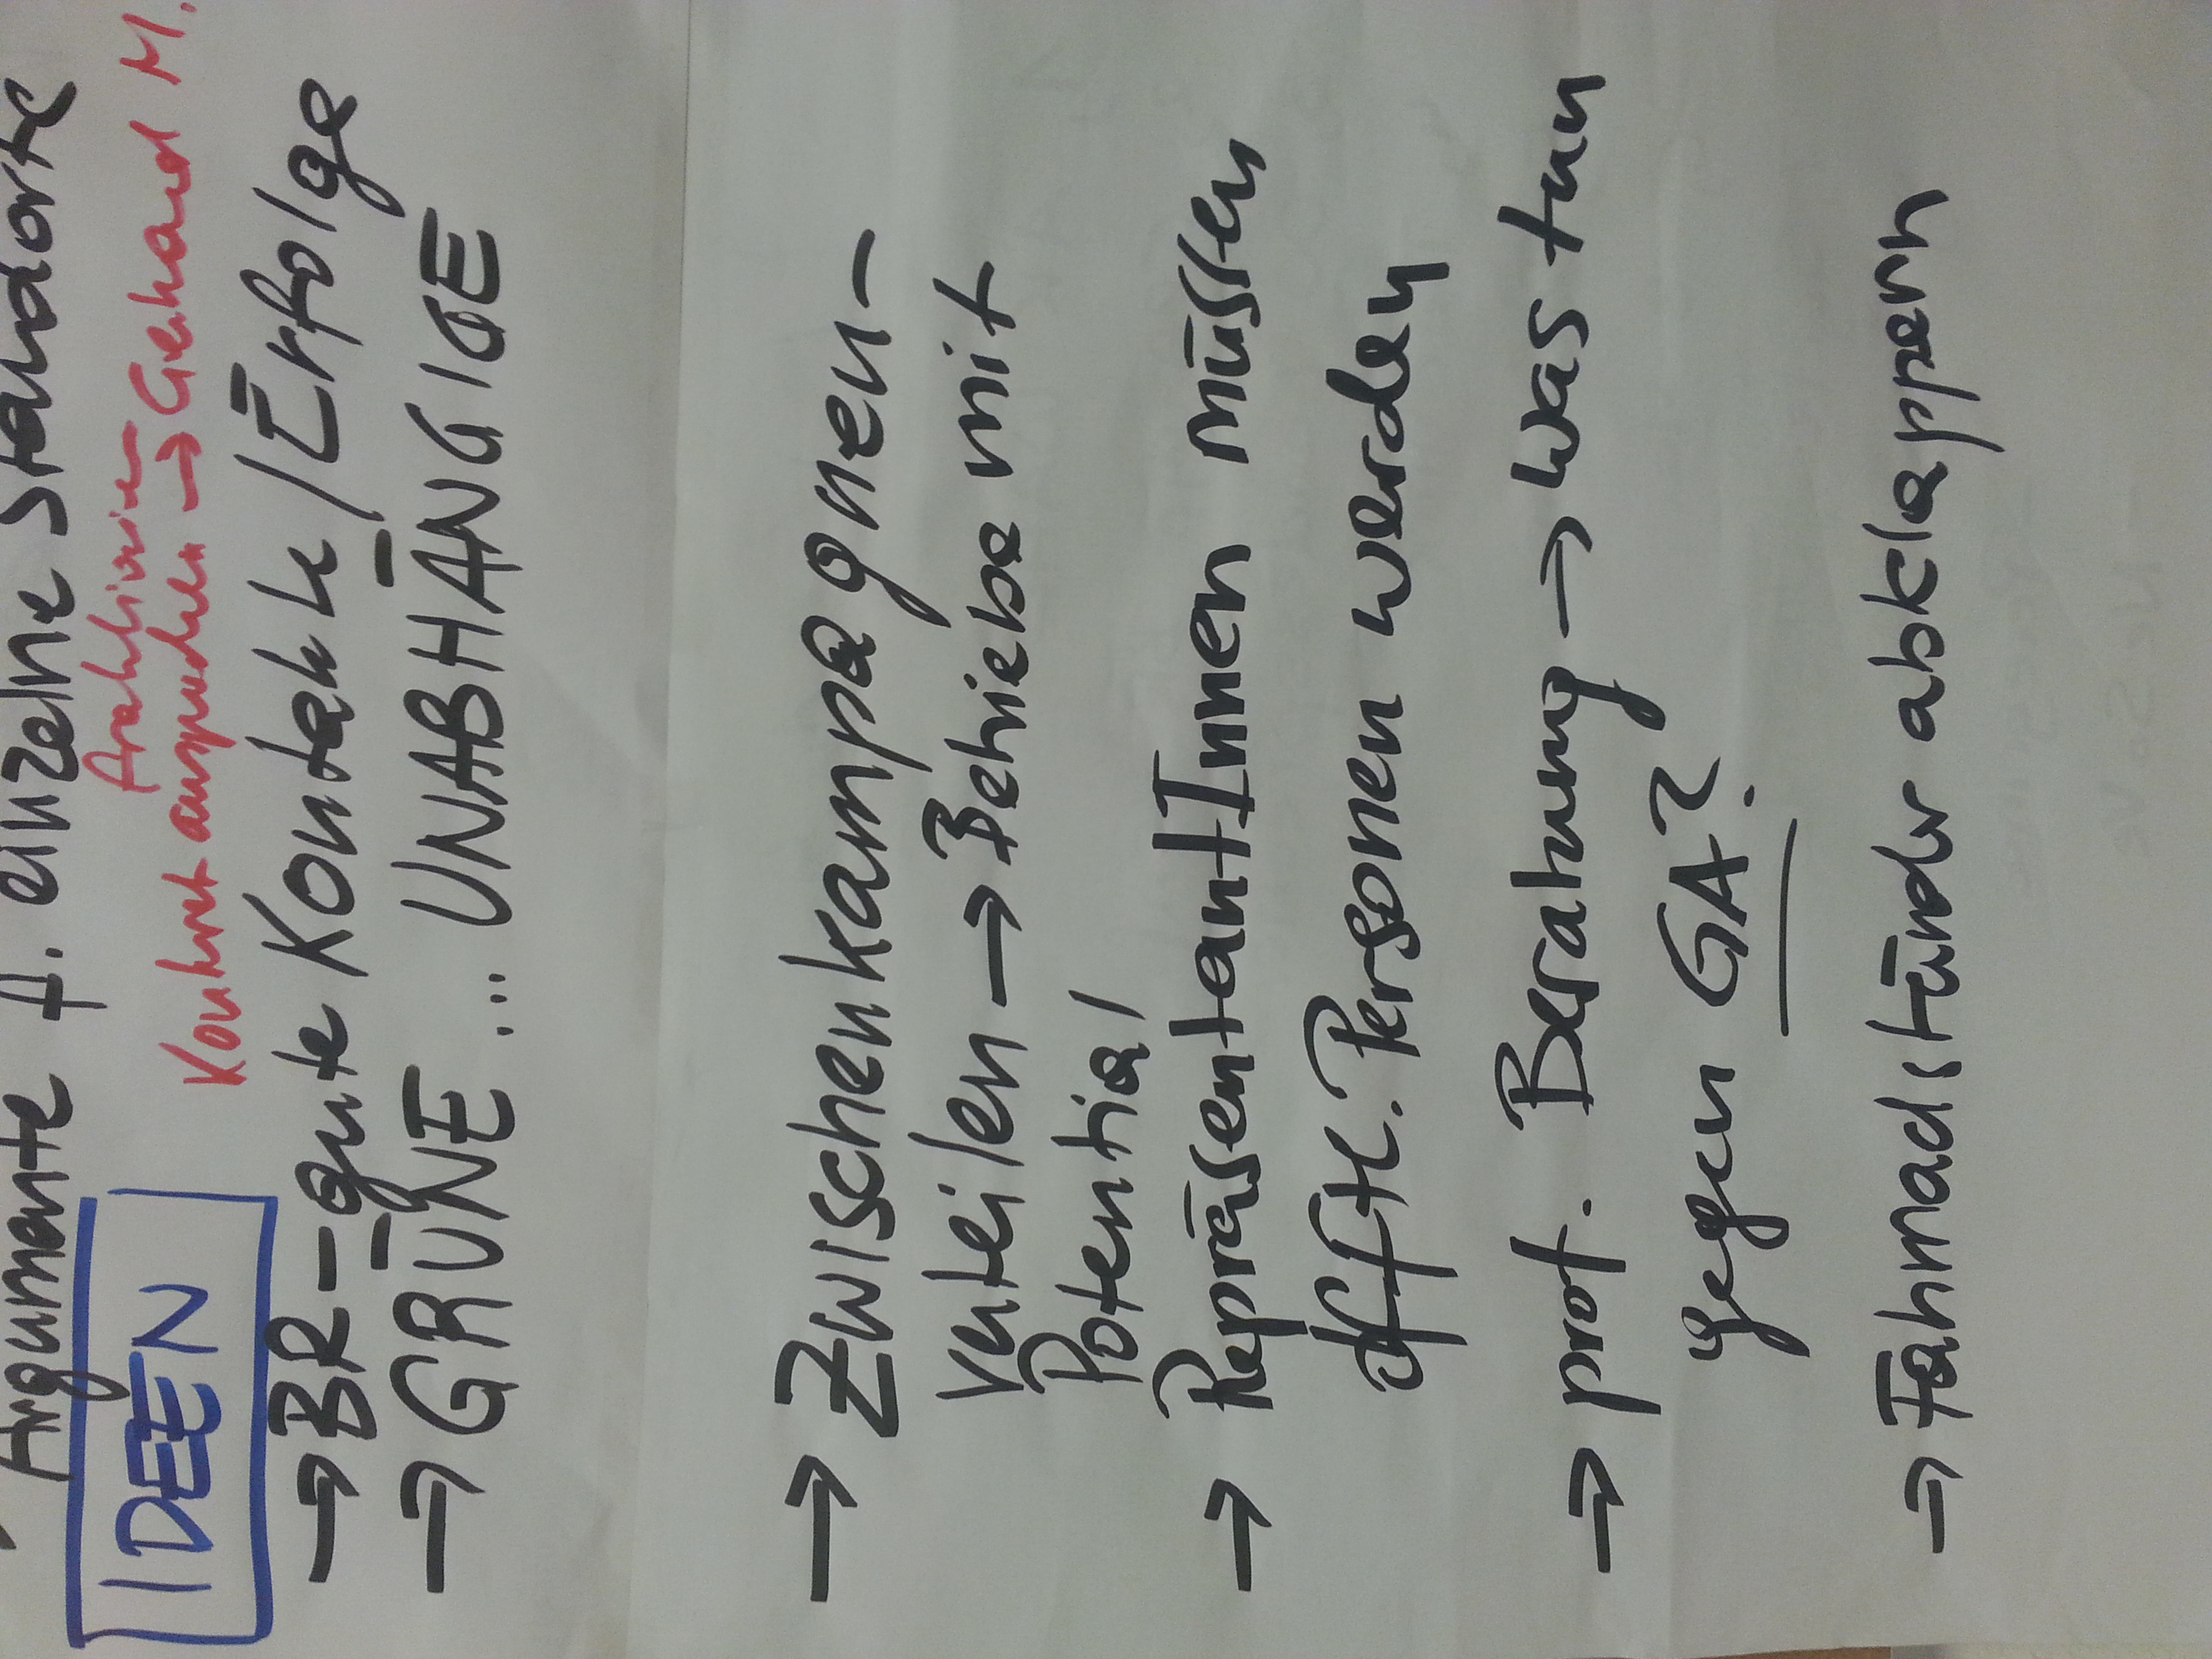 Argumente f. einzelne Standorte
Konkret ansprechen → Gerhard M.
IDEEN
→ BR - gute Kontakte / Erfolge
→ GRÜNE ... UNABHÄNGIGE
→ Zwischenkampagnen -
Vuteilen → Betriebe mit
Potential
→ RepräsentantInnen müssen
öfftl. Personen werden
→ prof. Beratung → was tun
gegen GA?
→ Fahrradständer abklappern